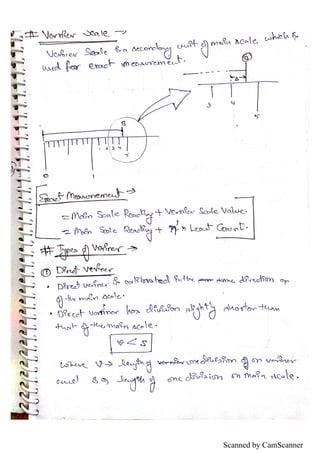 # Vernier Scale →
Vernier Scale is a secondary unit of main scale, which is
used for exact measurement.
B
3 4 5
B
1 2 3 4 5
0 1
Exact Measurement →
= Main Scale Reading + Vernier Scale Value.
= Main Scale Reading + n × Least Count.
# Types of Vernier →
① Direct Vernier
• Direct vernier is calibrated in the same direction
of the main scale.
• Direct vernier has division slightly shorter than
that of the main scale.
v < s
where v → length of one division of on vernier
and s → length of one division on main scale.
Scanned by CamScanner